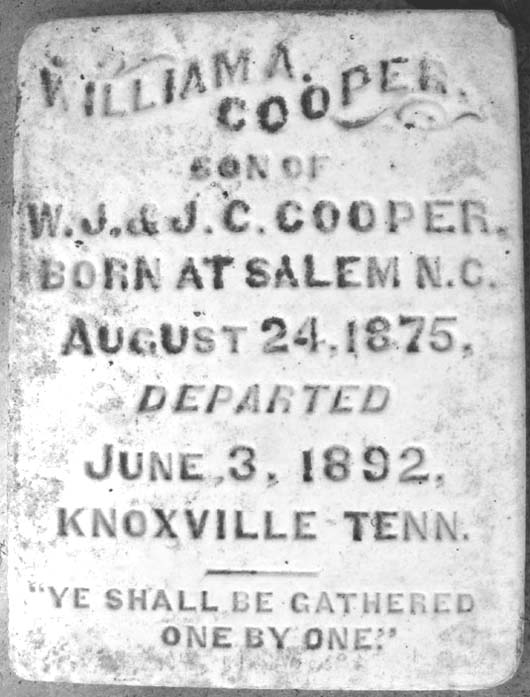 WILLIAM A. COOPER.
SON OF
W. J. & J. C. COOPER.
BORN AT SALEM N.C.
AUGUST 24, 1875,
DEPARTED
JUNE, 3, 1892,
KNOXVILLE TENN.
"YE SHALL BE GATHERED
ONE BY ONE."